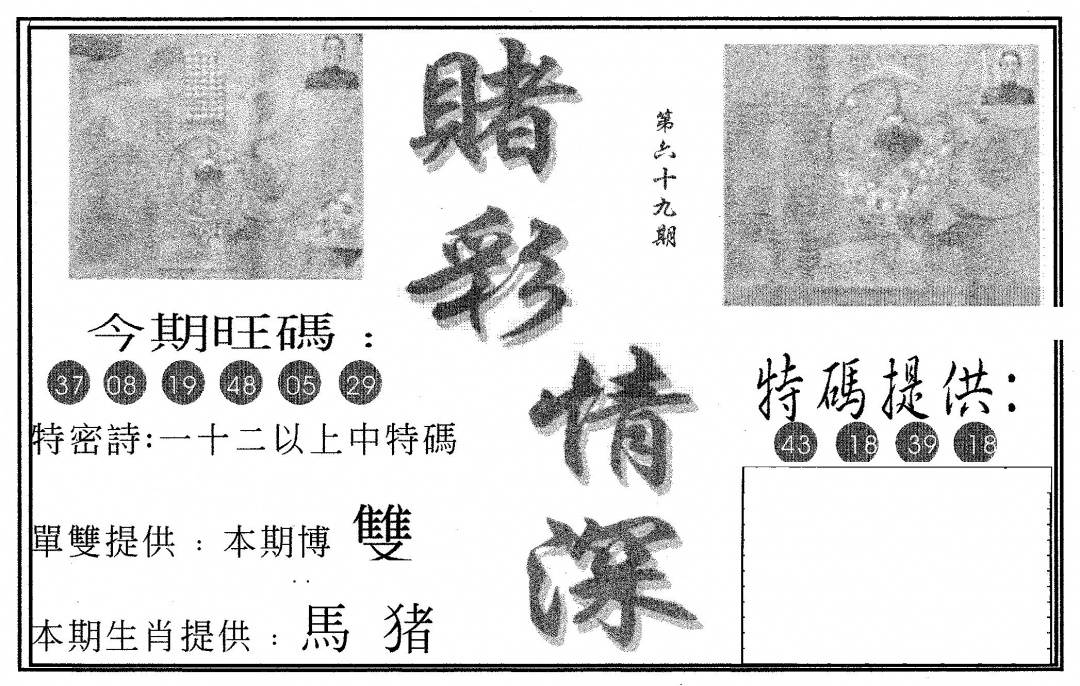 賭彩情深
第六十九期
今期旺碼：
37 08 19 48 05 29
特密詩:一十二以上中特碼
單雙提供：本期博 雙
本期生肖提供：馬 猪
特碼提供：
43 18 39 18